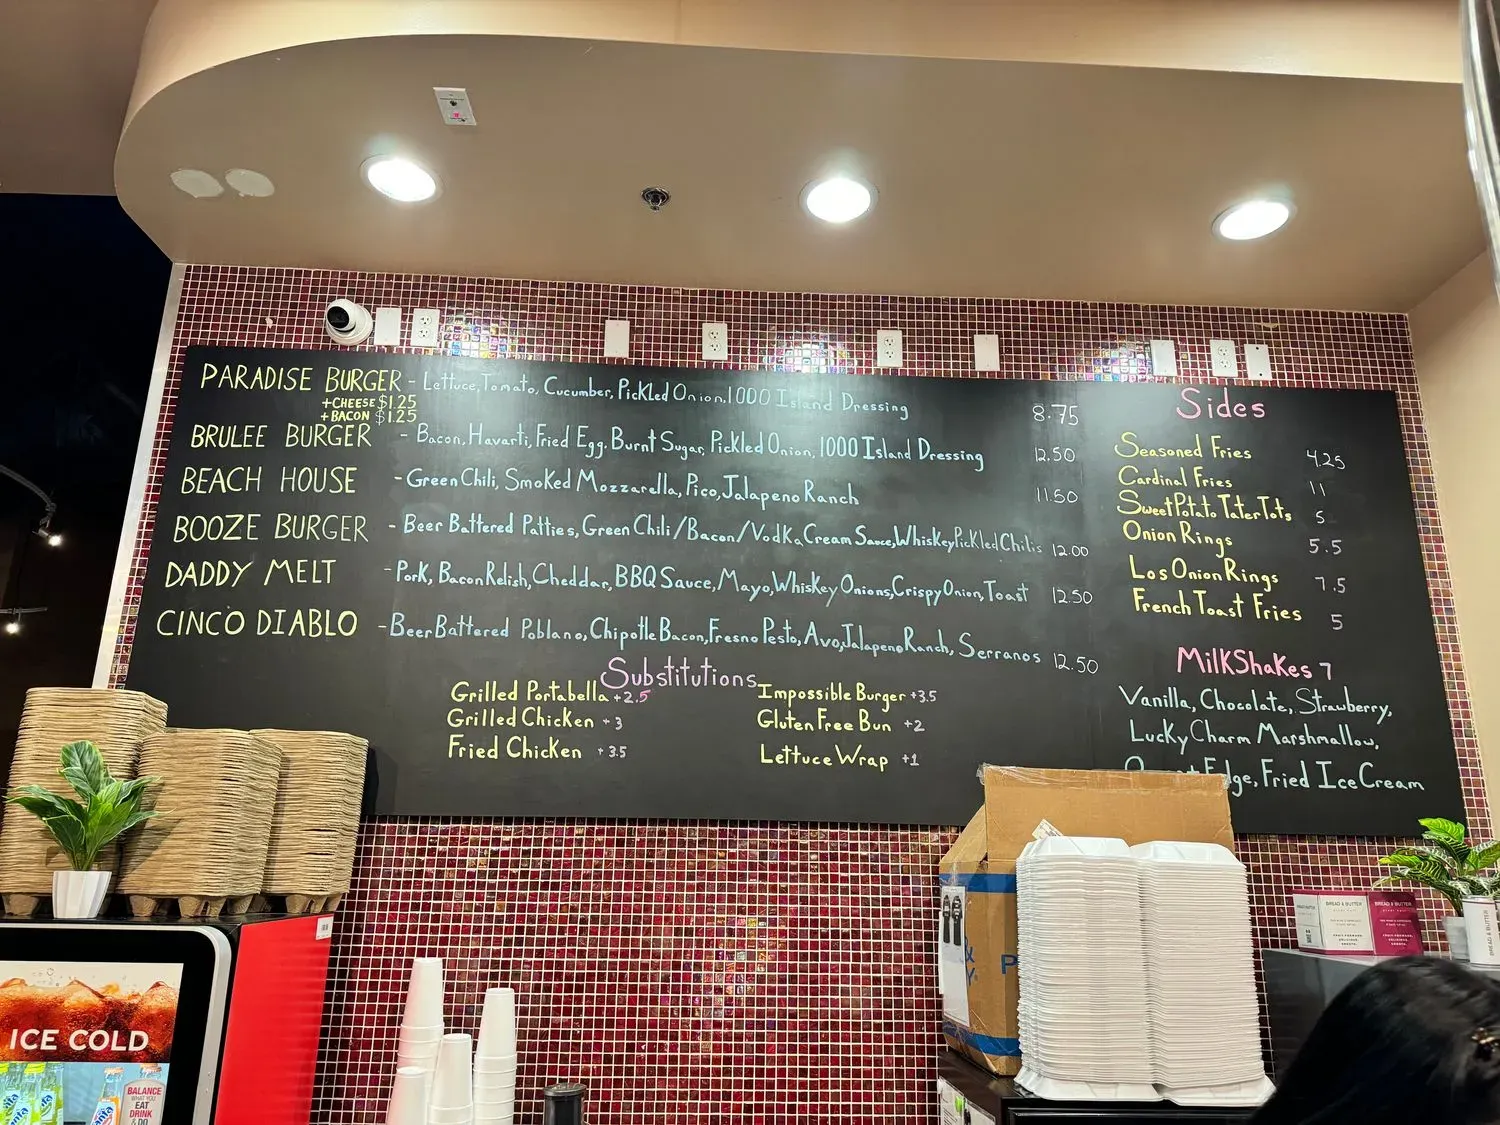 PARADISE BURGER - Lettuce, Tomato, Cucumber, Pickled Onion, 1000 Island Dressing 8.75
+CHEESE $1.25
+BACON $1.25
BRULEE BURGER - Bacon, Havarti, Fried Egg, Burnt Sugar, Pickled Onion, 1000 Island Dressing 12.50
BEACH HOUSE - Green Chili, Smoked Mozzarella, Pico, Jalapeno Ranch 11.50
BOOZE BURGER - Beer Battered Patties, Green Chili/Bacon/Vodka Cream Sauce, Whiskey Pickled Chilis 12.00
DADDY MELT - Pork, Bacon Relish, Cheddar, BBQ Sauce, Mayo, Whiskey Onions, Crispy Onion, Toast 12.50
CINCO DIABLO - Beer Battered Poblano, Chipotle Bacon, Fresno Pesto, Avo, Jalapeno Ranch, Serranos 12.50
Substitutions
Grilled Portabella +2.5
Grilled Chicken +3
Fried Chicken +3.5
Impossible Burger +3.5
Gluten Free Bun +2
Lettuce Wrap +1
Sides
Seasoned Fries 4.25
Cardinal Fries 11
Sweet Potato Tater Tots 5
Onion Rings 5.5
Los Onion Rings 7.5
French Toast Fries 5
MilkShakes 7
Vanilla, Chocolate, Strawberry,
Lucky Charm Marshmallow,
Fried Ice Cream
ICE COLD
BALANCE
WHAT YOU
EAT
DRINK
& DO
BREAD & BUTTER
BREAD & BUTTER
BREAD & BUTTER